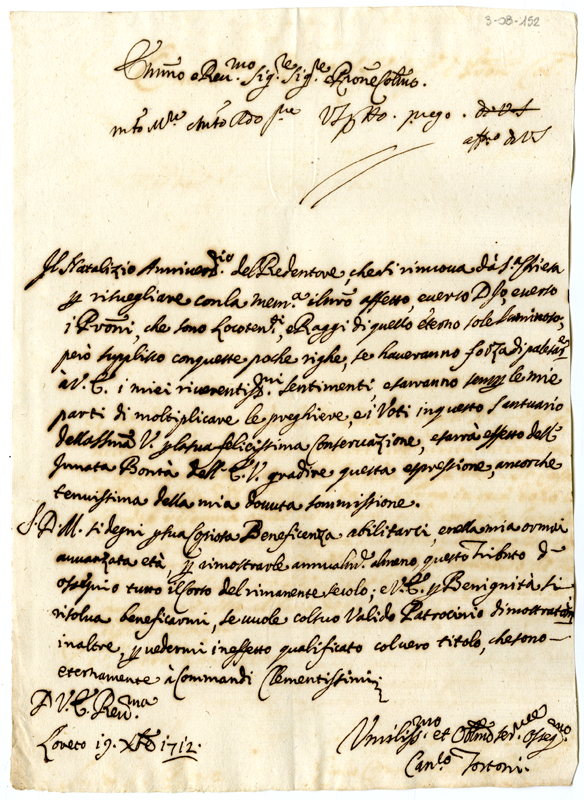 3-08-152
Emmo e Reu.mo Sig.re Sig.re e Prone Colmo.
Il Natalizio Anniuers.rio del Redentore, che si rinuoua dà S.ta Chiesa
risuegliare con la mem.a il nro affetto, e uerso Dio, e uerso
i Proni, che sono Locoten.ti, e Raggi di quello eterno sole Luminoso,
però supplisco con queste poche righe, se haueranno forza di palesar
à V. E. i miei riuerentiss.mi sentimenti, e saranno sempre le mie
parti di moltiplicare le preghiere, e i Voti in questo Santuario
della ssma V. la sua felicissima Conseruazione, e sarà effetto dell'
Innata Bontà dell' E. V. gradire questa espressione, ancorche
tenuissima della mia douuta sommissione.
S. D. M. si degni sua Copiosa Beneficenza abilitarci, e nella mia ormai
auuanzata età, rimostrarle annualm.te almeno, questo Tributo d'
ossequio tutto il corso del rimanente secolo; e V. E. Benignità si
risolua beneficarmi, se uuole col suo Valido Patrocinio
inoltre, uedermi in effetto qualificato col uero titolo, che sono
eternamente à Commandi Clementissimi
D V. E. Reu.ma
Loreto 19. Xbre 1712.
Umiliss.mo et Ser.re Osseq.mo
Can.co Tortoni.